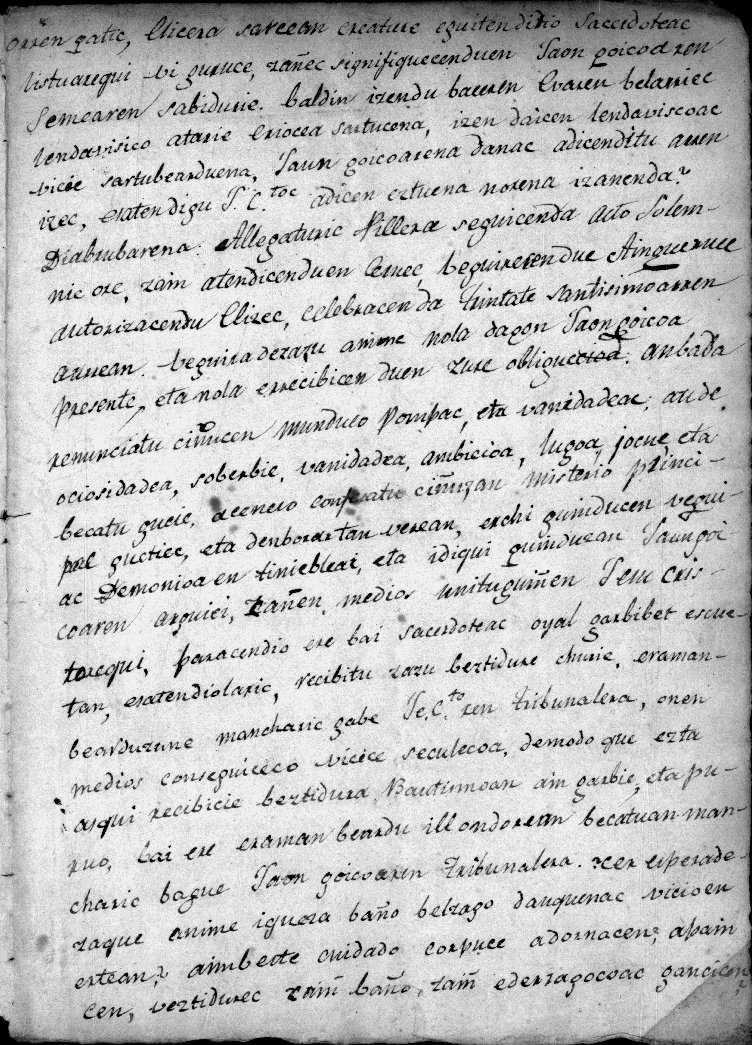 orren gatic, Elicera sarcean creature eguitenditio Sacerdoteac
listuarequi vi guruce, zañec significuecenduen Jaon goicoaren
Semearen sabidurie. baldin izendu baceren Evaren belarriec
lendavisico atarie eriocea sartucena, izen daicen lendaviscoac
vicie sartubearduena, Jaun goicoarena danac adicenditu arren
izec, esatendigu J. C.toc adicen eztuena norena izanenda?
Diabrubarena. Allegaturic Pillera seguicenda acto Solem-
nic ore, zain atendicenduen Ceruec, beguirecendue Ainguerucc
autorizacendu Elizec, celebracenda Trinitate Santisimoarren
aurrean. beguiradezazu anime nola dagon Jaongoicoa
presente, eta nola errecibicenduen zure obliguecioa. anbada
renunciatu ciñucen munduco Pompac, eta vanidadeac, au de
ociosidadea, soberbie, vanidadea, ambicioa, lugoa, jocue eta
becatu gucie, acenero confesatu ciñuzan misterio princi-
pal guctiec, eta denborartan verean, erchi guinducen vegui-
ac Demonioaen tinieblai, eta idiqui guinduzan Jaungoi-
coaren arguiei, zañen medios unituguiñen Jesu Cris-
torequi, paracendio ere bai sacerdoteac oyal garbibet escue-
tan, esatendiolaric, recibitu zazu beztidure churie, eraman-
bearduzune mancharic gabe Je.C.to ren tribunalera, onen
medios conseguiceco vicice seculecoa, demodo que ezta
asqui recibicie beztidura Bautismoan ain garbie, eta pu-
ruo, bai ere eraman beardu ill ondorean becatuan man-
charic bague Jaon goicoaren tribunalera. zer esperade-
zaque anime iguoza baño belzago dauquenac vicioen
ertean? aimbeste cuidado corpuce adornacen, apain
cen, veztidurec zaiñ baño zaiñ ederzagocoac gancicen,